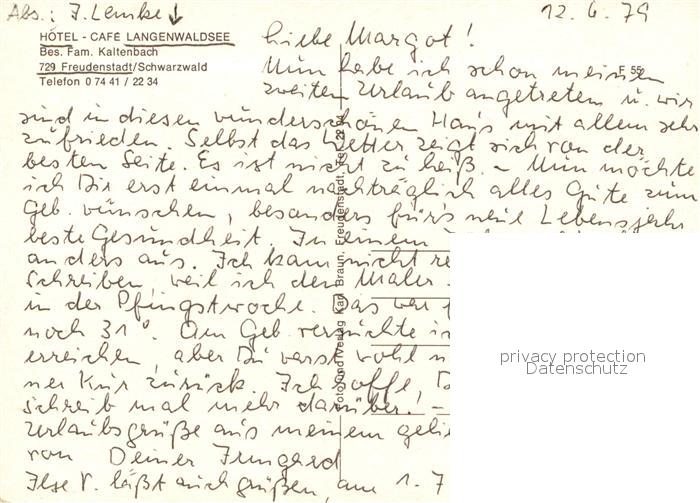 Abs.: J. Lemke
12.6.79
HOTEL - CAFÉ LANGENWALDSEE
Bes. Fam. Kaltenbach
729 Freudenstadt/Schwarzwald
Telefon 0 74 41 / 22 34
Liebe Margot!
Nun habe ich schon meinen
F 55
zweiten Urlaub angetreten u. wir
sind in diesen wunderschönen Haus mit allem sehr
zufrieden. Selbst das Wetter zeigt sich von der
besten Seite. Es ist nicht zu heiß. – Nun möchte
ich Dir erst einmal nachträglich alles Gute zum
Geb. wünschen, besonders für's neue Lebensjahr
beste Gesundheit. In einem
anders aus. Ich kam nicht
schreiben, weil ich den Maler
in der Pfingstwoche. Das war
noch 31°. Am Geb. versuchte
erreichen, aber Du warst wohl
ner Kur zurück. Ich hoffe,
schreib mal mehr darüber! –
Urlaubsgrüße aus meinem
von Deiner Irmgard
Ilse V. läßt auch grüßen, am 1.7
Foto und Verlag Karl Braun, Freudenstadt, Tel.
privacy protection
Datenschutz